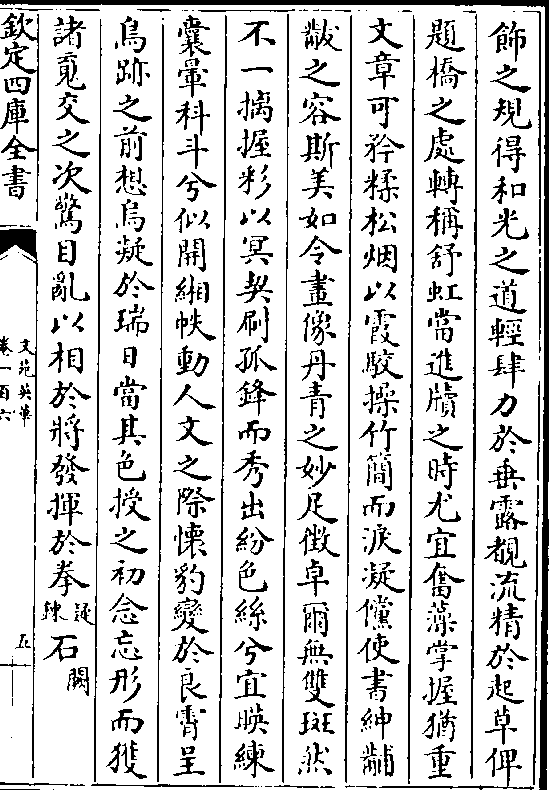 飾之規得和光之道輕肆力於垂露覩流精於起草俾
題橋之處轉稱舒虹當進牘之時尤宜奮藻掌握猶重
文章可矜糅松烟以霞駮操竹簡而淚凝儻使書紳黼
黻之容斯美如令畫像丹青之妙足徴卓爾無雙斑然
不一摛握彩以冥契刷孤鋒而秀出紛色絲兮宜暎練
囊暈科斗兮似開緗帙動人文之際懐豹變於良霄呈
鳥跡之前想烏凝於瑞日當其色授之初念忘形而獲
諸覔交之次驚目亂以相於將發揮於拳疑錬石闕
欽定四庫全書
文苑英華
卷一百六
五